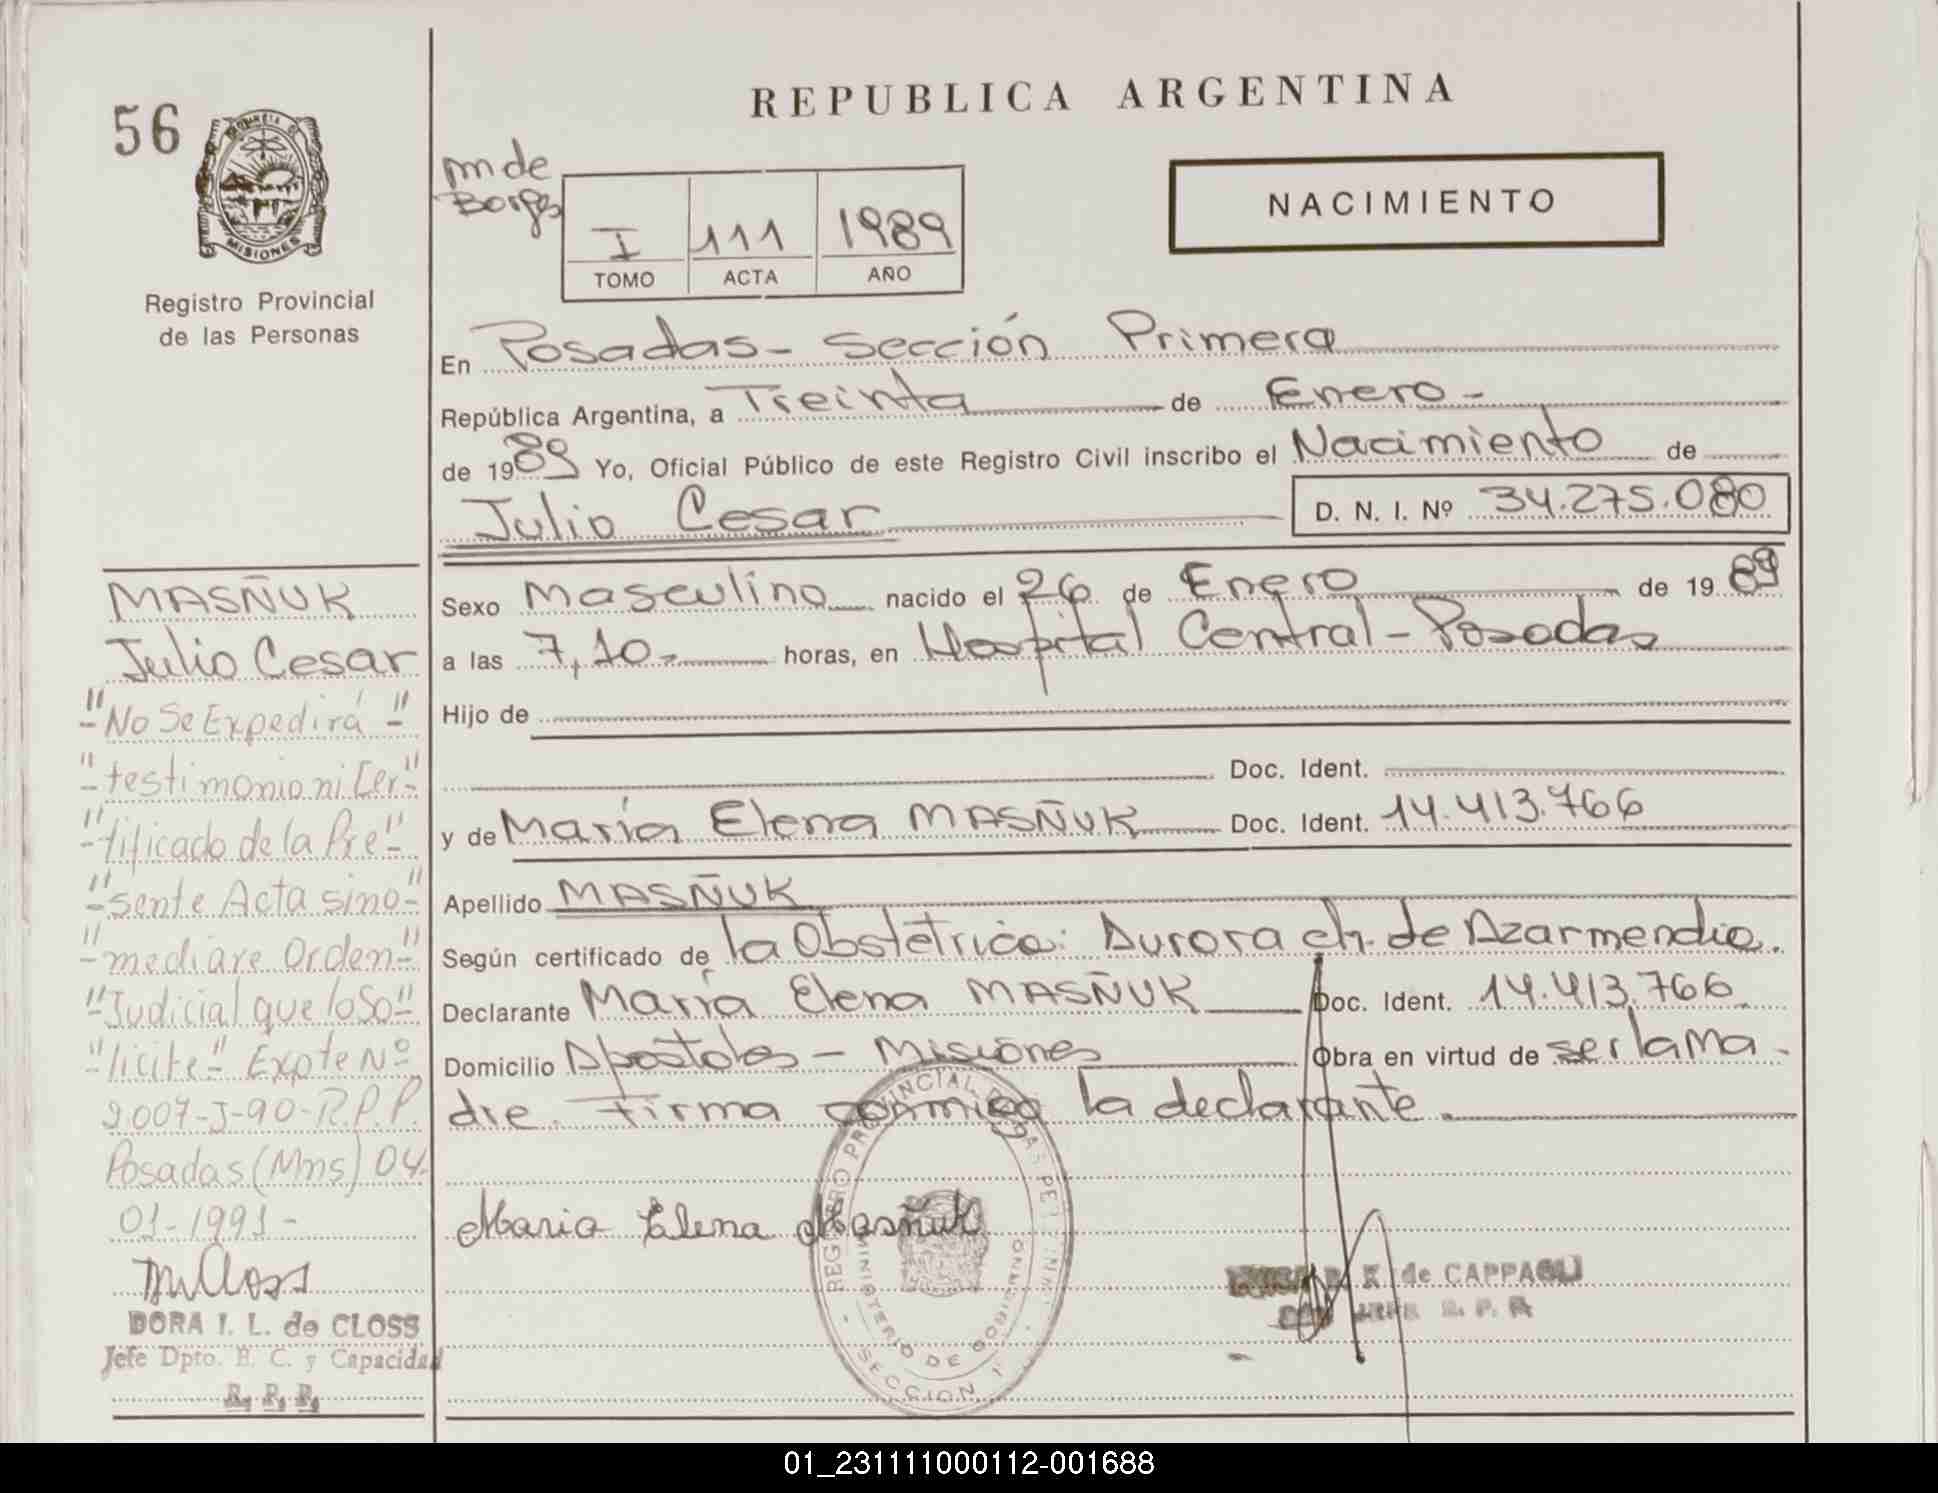 56
PROVINCIA DE
MISIONES
Registro Provincial
de las Personas
REPUBLICA ARGENTINA
m de
Borges
I 111 1989
TOMO ACTA AÑO
NACIMIENTO
En Posadas - Sección Primera
República Argentina, a Treinta de Enero -
de 1989 Yo, Oficial Público de este Registro Civil inscribo el Nacimiento de
Julio Cesar
D. N. I. Nº 34.275.080
Sexo Masculino nacido el 26 de Enero de 1989
a las 7,10.- horas, en Hospital Central - Posadas
Hijo de
Doc. Ident.
y de María Elena MASÑUK Doc. Ident. 14.413.766
Apellido MASÑUK
Según certificado de la Obstétrica: Aurora ch. de Azarmendia.
Declarante María Elena MASÑUK Doc. Ident. 14.413.766
Domicilio Apostoles - Misiones Obra en virtud de ser la Ma-
dre. Firma conmigo la declarante.
Maria Elena Masñuk
REGISTRO PROVINCIAL DE LAS PERSONAS
MINISTERIO DE GOBIERNO
- SECCION 1 -
R. K. de CAPPAGLI
JEFE R. P. P.
MASÑUK
Julio Cesar
"-No Se Expedirá-"
"-testimonio ni Cer-"
"-tificado de la Pre-"
"-sente Acta sino-"
"-mediare Orden-"
"-Judicial que lo So-"
"-licite-" Expte Nº
9007-J-90-R.P.P.
Posadas (Mns) 04-
01-1991-
DORA I. L. de CLOSS
Jefe Dpto. E. C. y Capacidad
R. P. P.
01_231111000112-001688